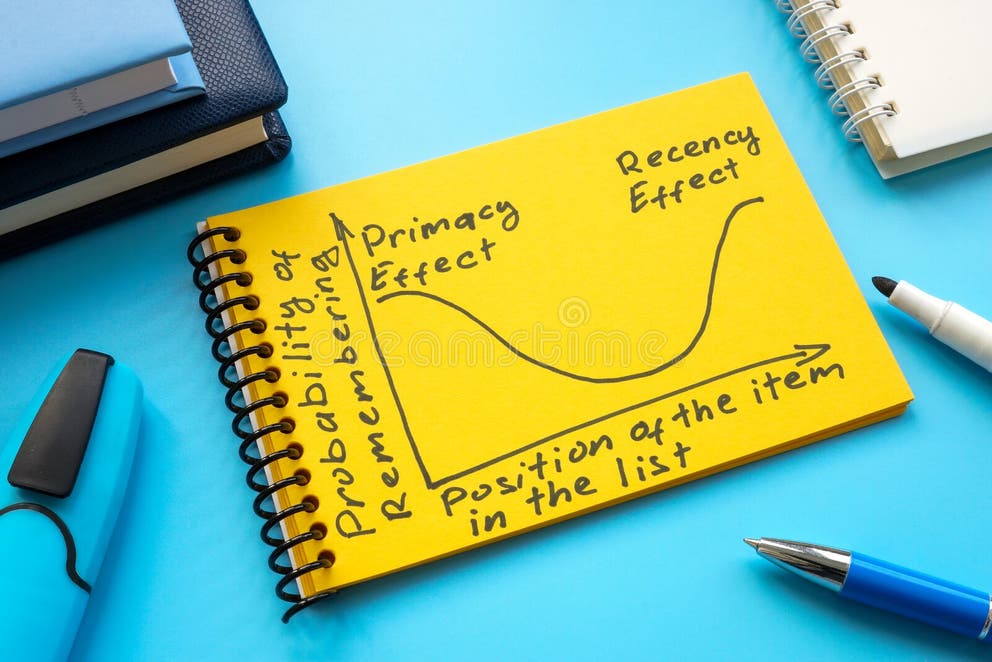 Primacy
Effect
Recency
Effect
Probability of
Remembering
Position of the item
in the list
dreamstime